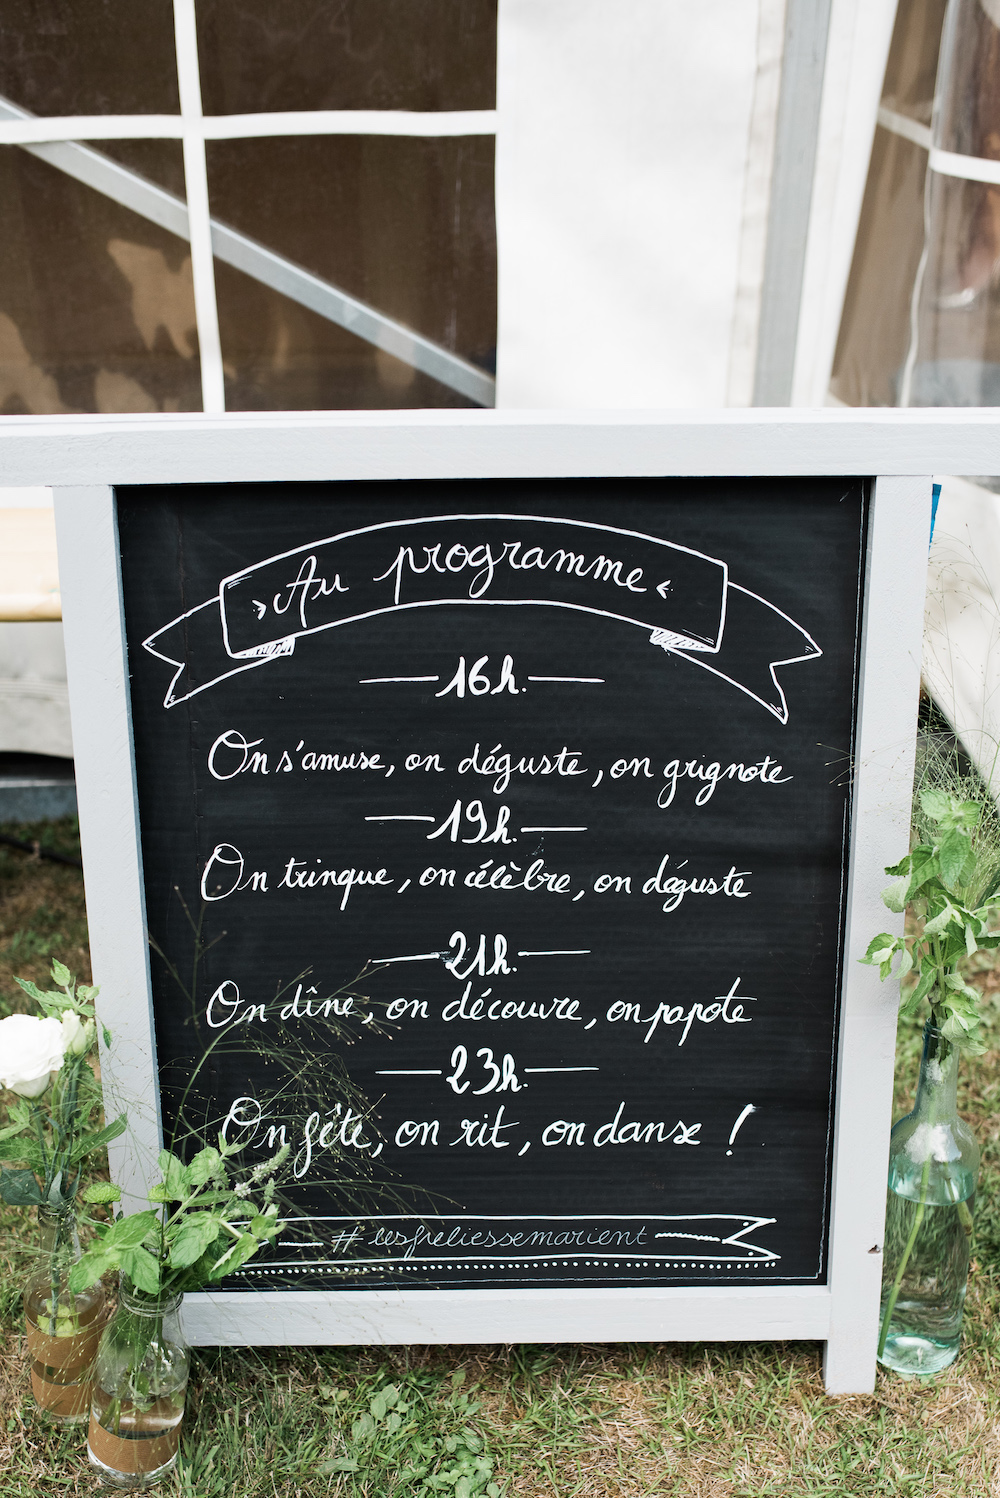 Au programme
16h.
On s'amuse, on déguste, on grignote
19h.
On trinque, on célèbre, on déguste
21h.
On dîne, on découvre, on papote
23h.
On fête, on rit, on danse !
#lesfreliessemarient